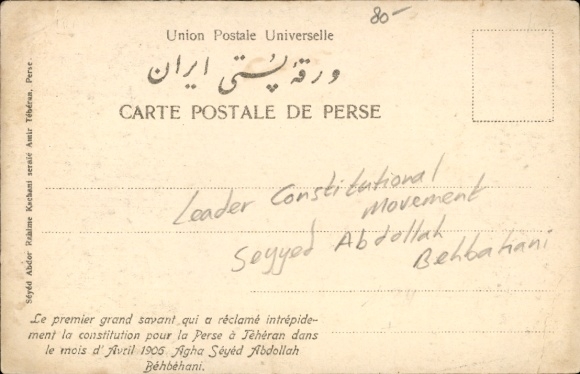 80-
Union Postale Universelle
ورقهٔ پُستی ایران
CARTE POSTALE DE PERSE
Séyéd Abdor Rahime Kachani seraïe Amir Téhéran, Perse.
Leader Constitutional
Movement
Seyyed Abdollah
Behbahani
Le premier grand savant qui a réclamé intrépide-
ment la constitution pour la Perse à Téhéran dans
le mois d'Avril 1905 Agha Séyéd Abdollah
Béhbéhani.